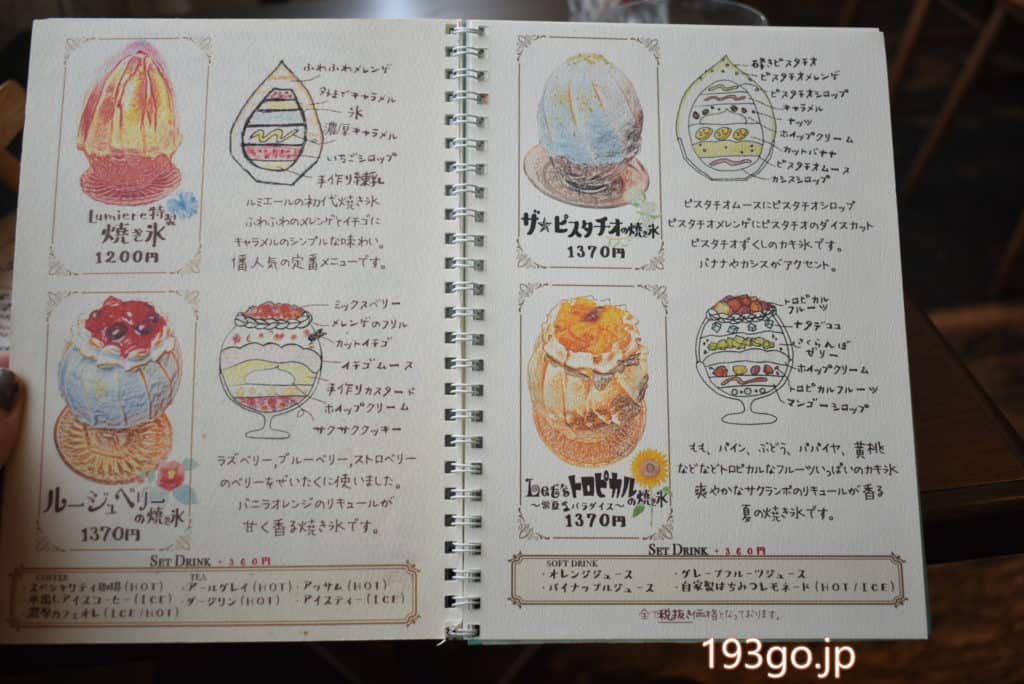 ふわふわメレンゲ
外までキャラメル
氷
濃厚キャラメル
いちごシロップ
手作り練乳
Lumiere特製
焼き氷
1200円
ルミエールの初代焼き氷
ふわふわのメレンゲとイチゴに
キャラメルのシンプルな味わい。
1番人気の定番メニューです。
ミックスベリー
メレンゲのフリル
カットイチゴ
イチゴムース
手作りカスタード
ホイップクリーム
サクサククッキー
ルージュベリー
の焼き氷
1370円
ラズベリー,ブルーベリー,ストロベリー
のベリーをぜいたくに使いました。
バニラオレンジのリキュールが
甘く香る焼き氷です。
SET DRINK +360円
COFFEE
・スペシャリティ珈琲(HOT)
・水出しアイスコーヒー(ICE)
・濃厚カフェオレ(ICE/HOT)
TEA
・アールグレイ(HOT)・アッサム(HOT)
・ダージリン(HOT)・アイスティー(ICE)
砕きピスタチオ
ピスタチオメレンゲ
ピスタチオシロップ
キャラメル
ナッツ
ホイップクリーム
カットバナナ
ピスタチオムース
カシスシロップ
ザ☆ピスタチオの焼き氷
1370円
ピスタチオムースにピスタチオシロップ
ピスタチオメレンゲにピスタチオのダイスカット
ピスタチオずくしのカキ氷です。
バナナやカシスがアクセント。
トロピカル
フルーツ
ナタデココ
さくらんぼ
ゼリー
ホイップクリーム
トロピカルフルーツ
マンゴーシロップ
Let'sトロピカルの焼き氷
〜常夏パラダイス〜
1370円
もも、パイン、ぶどう、パパイヤ、黄桃
などなどトロピカルなフルーツいっぱいのカキ氷
爽やかなサクランボのリキュールが香る
夏の焼き氷です。
SET DRINK +360円
SOFT DRINK
・オレンジジュース
・パイナップルジュース
・グレープフルーツジュース
・自家製はちみつレモネード(HOT/ICE)
全て税抜き価格となっております。
193go.jp